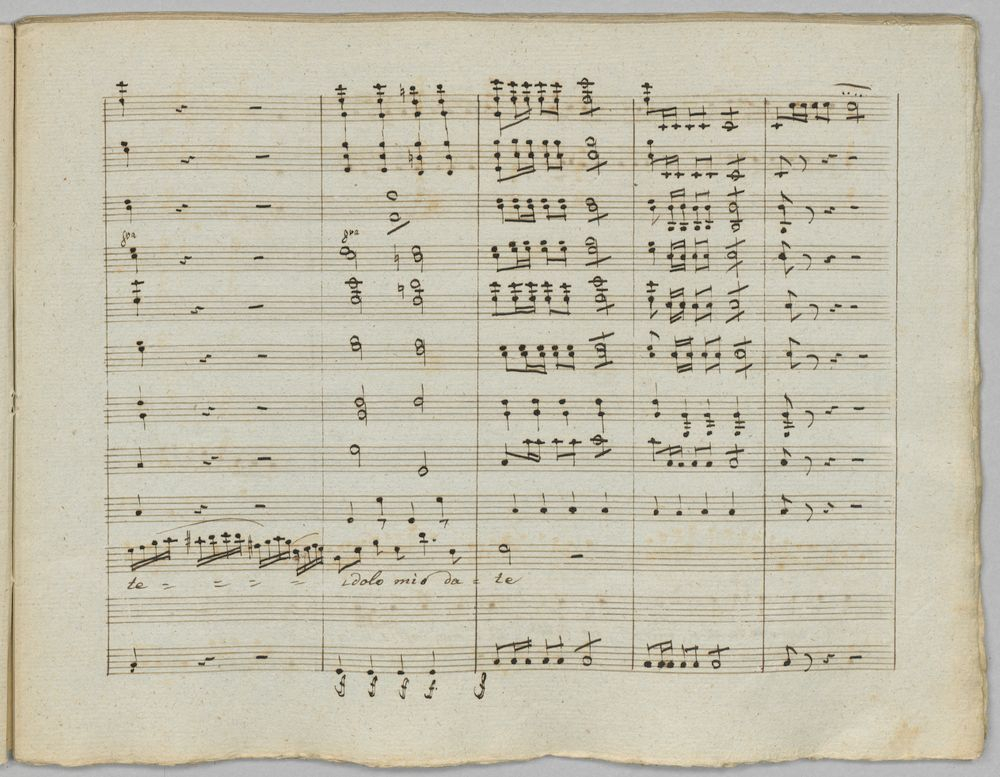 8va 8va
te = = = = idolo mio da = te